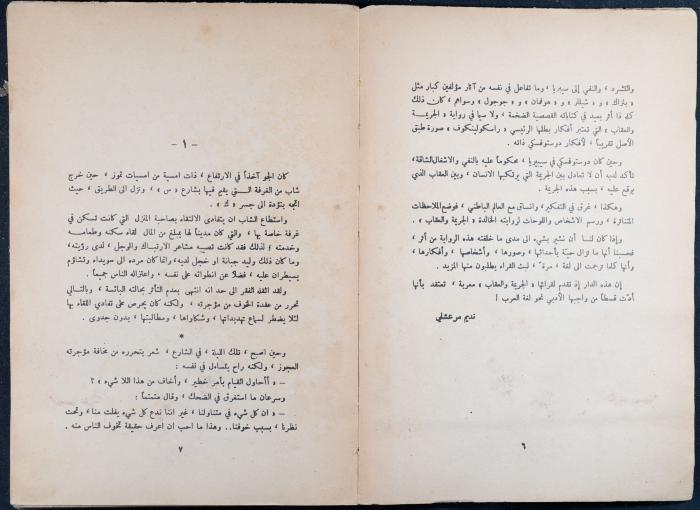 والتشرد ، والنفي إلى سيبريا ، وما تفاعل في نفسه من آثار مؤلفين كبار مثل
« بلزاك » و « شيللر » و « هوفمان » و « جوجول » وسواهم ، كان ذلك
كله ذا أثر بعيد في كتاباته القصصية الضخمة ، ولا سيما في رواية « الجريمة
والعقاب » التي تعتبر أفكار بطلها الرئيسي « راسكولينكوف » صورة طبق
الأصل تقريباً ، لأفكار دوستوفسكي ذاته .
وحين كان دوستوفسكي في سيبيريا ، محكوماً عليه بالنفي والاشغال الشاقة،
تأكد لديه أن لا تعادل بين الجريمة التي يرتكبها الانسان ، وبين العقاب الذي
يوقع عليه ، بسبب هذه الجريمة .
وهكذا ، غرق في التفكير ، وانساق مع العالم الباطني ، فوضع الملاحظات
المتناثرة ، ورسم الاشخاص واللوحات لروايته الخالدة « الجريمة والعقاب » .
وإذا كان لنا أن نشير بشيء الى مدى ما خلفته هذه الرواية من أثر ،
فحسبنا أنها ما تزال حيّة بأحداثها ، وصورها ، وأشخاصها ، وأفكارها ،
وأنها كلما ترجمت الى لغة ، مرة ، لبث القراء يطلبون منها المزيد .
إن هذه الدار إذ تقدم لقرائها « الجريمة والعقاب » معربة ، تعتقد بأنها
أدّت قسطاً من واجبها الأدبي نحو لغة العرب !
نديم مرعشلي
٦
- ١ -
كان الجو آخذاً في الارتفاع ، ذات امسية من امسيات تموز ، حين خرج
شاب من الغرفة التي يقيم فيها بشارع « س » ، ونزل الى الطريق ، حيث
اتجه بتؤدة الى جسر « ك » .
واستطاع الشاب ان يتفادى الالتقاء بصاحبة المنزل التي كانت تسكن في
غرفة خاصة بها ، والتي كان مديناً لها بمبلغ من المال لقاء سكنه وطعامه
وخدمته ؛ لذلك فقد كانت تصيبه مشاعر الارتباك والوجل ، لدى رؤيتها،
وما كان ذلك وليد جبانة او خجل لديه، وانما كان مرده الى سويداء وتشاؤم
يسيطران عليه ، فضلاً عن انطوائه على نفسه ، واعتزاله الناس جميعاً .
ولقد اثقله الفقر الى حد انه انتهى بعدم التأثر بحالته البائسة ، وبالتالي
تحرر من عقدة الخوف من مؤجرته ، ولكنه كان يحرص على تفادي اللقاء بها
لئلا يضطر لسماع تهديداتها ، وشكاواها ، ومطالبتها ، بدون جدوى .
*
وحين اصبح ، تلك الليلة ، في الشارع ، شعر بتحرره من مخافة مؤجرته
العجوز ، ولكنه راح يتساءل في نفسه :
– « أأحاول القيام بأمر خطير ، وأخاف من هذا اللا شيء » ؟
وسرعان ما استغرق في الضحك ، وقال متمتماً :
– « ان كل شيء في متناولنا ، غير اننا ندع كل شيء يفلت منا ، وتحت
نظرنا ، بسبب خوفنا.. وهذا ما احب ان اعرف حقيقة تخوف الناس منه .
٧